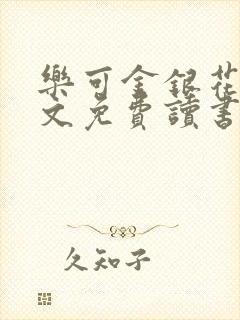 樂可金銀花
文免費讀書
久知子